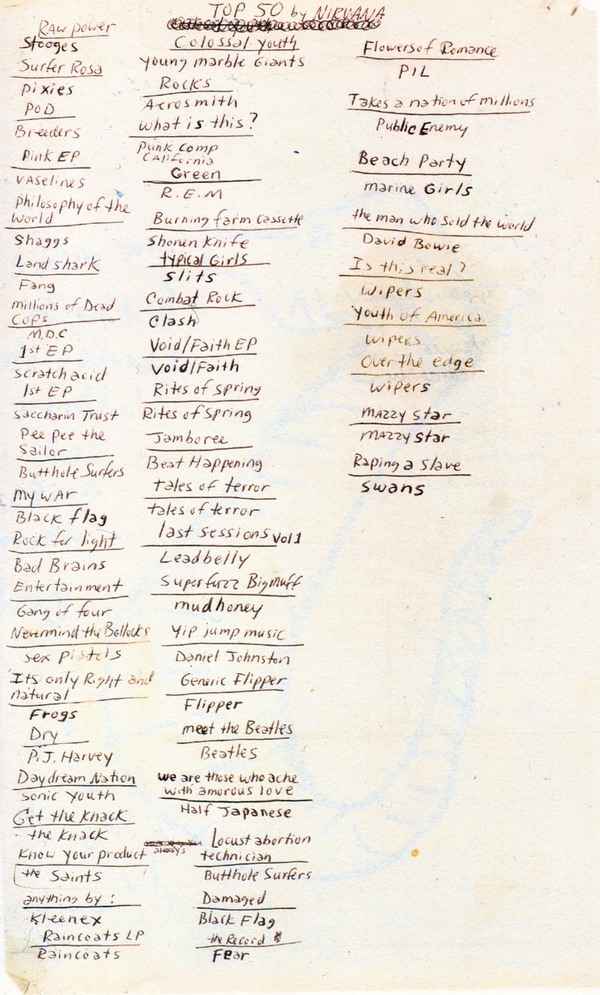 TOP 50 by NIRVANA
Raw power
Stooges
Surfer Rosa
Pixies
POD
Breeders
Pink EP
Vaselines
Philosophy of the
World
Shaggs
Land shark
Fang
millions of Dead
Cops
M.D.C
1st EP
Scratch acid
1st EP
Saccharin Trust
Pee Pee the
Sailor
Butthole Surfers
My War
Black flag
Rock for light
Bad Brains
Entertainment
Gang of four
Nevermind the Bollocks
sex pistols
Its only Right and
natural
Frogs
Dry
P.J. Harvey
Daydream Nation
sonic Youth
Get the Knack
the Knack
Know your product
the Saints
anything by :
Kleenex
Raincoats LP
Raincoats
Colossal Youth
Young marble Giants
Rocks
Aerosmith
what is this?
Punk Comp
California
Green
R.E.M
Burning farm Cassette
Shonen Knife
typical Girls
Slits
Combat Rock
Clash
Void/Faith EP
Void/Faith
Rites of Spring
Rites of Spring
Jamboree
Beat Happening
tales of terror
tales of terror
last sessions Vol 1
Leadbelly
Superfuzz Bigmuff
mudhoney
Yip jump music
Daniel Johnston
Generic Flipper
Flipper
meet the Beatles
Beatles
we are those who ache
with amorous love
Half Japanese
Locust abortion
technician
Butthole Surfers
Damaged
Black Flag
the Record
Fear
Flowers of Romance
PIL
Takes a nation of millions
Public Enemy
Beach Party
marine Girls
the man who sold the world
David Bowie
Is this real?
Wipers
Youth of America
Wipers
Over the edge
Wipers
mazzy star
mazzy star
Raping a slave
swans